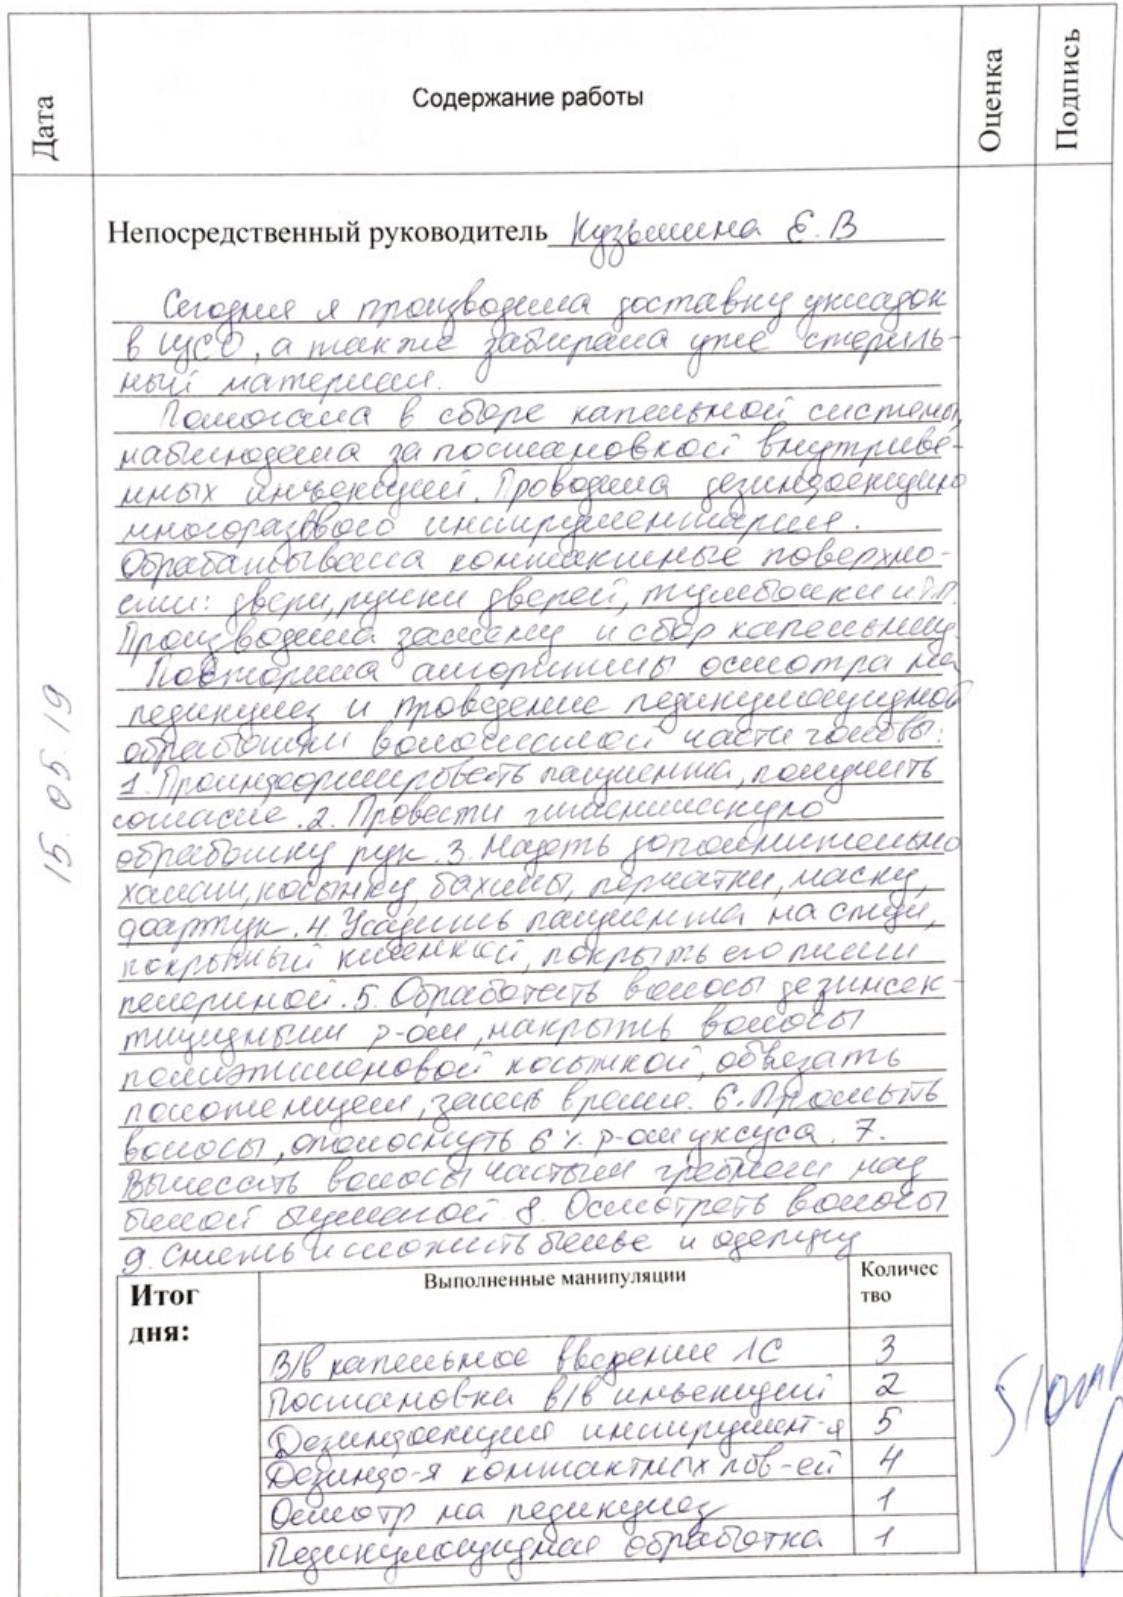 Дата
Содержание работы
Оценка
Подпись
Непосредственный руководитель Кузьмина Е.В
Сегодня я производила доставку укладок
в ЦСО, а также забирала уже стериль-
ный материал.
Помогала в сборе капельной системы,
наблюдала за постановкой внутриве-
нных инъекций. Проводила дезинфекцию
многоразового инструментария.
Обрабатывала контактные поверхно-
сти: двери, ручки дверей, тумбочки и т.п.
Производила замену и сбор капельниц.
Повторила алгоритмы осмотра на
педикулез и проведение педикулоцидной
обработки волосистой части головы:
1. Проинформировать пациента, получить
согласие. 2. Провести гигиеническую
обработку рук. 3. Надеть дополнительно
халат, косынку, бахилы, перчатки, маску,
фартук. 4. Усадить пациента на стул,
покрытый клеенкой, покрыть его плечи
пелериной. 5. Обработать волосы дезинсек-
тицидным р-ом, накрыть волосы
полиэтиленовой косынкой, обвязать
полотенцем, засечь время. 6. Промыть
волосы, ополоснуть 6% р-ом уксуса. 7.
Вычесать волосы частым гребнем над
белой бумагой. 8. Осмотреть волосы
9. Снять и сложить белье и одежду
15.05.19
Итог дня:
Выполненные манипуляции
Количес
тво
В/в капельное введение ЛС 3
Постановка в/в инъекций 2
Дезинфекция инструмент-я 5
Дезинф-я контактных пов-ей 4
Осмотр на педикулез 1
Педикулоцидная обработка 1
5/отл